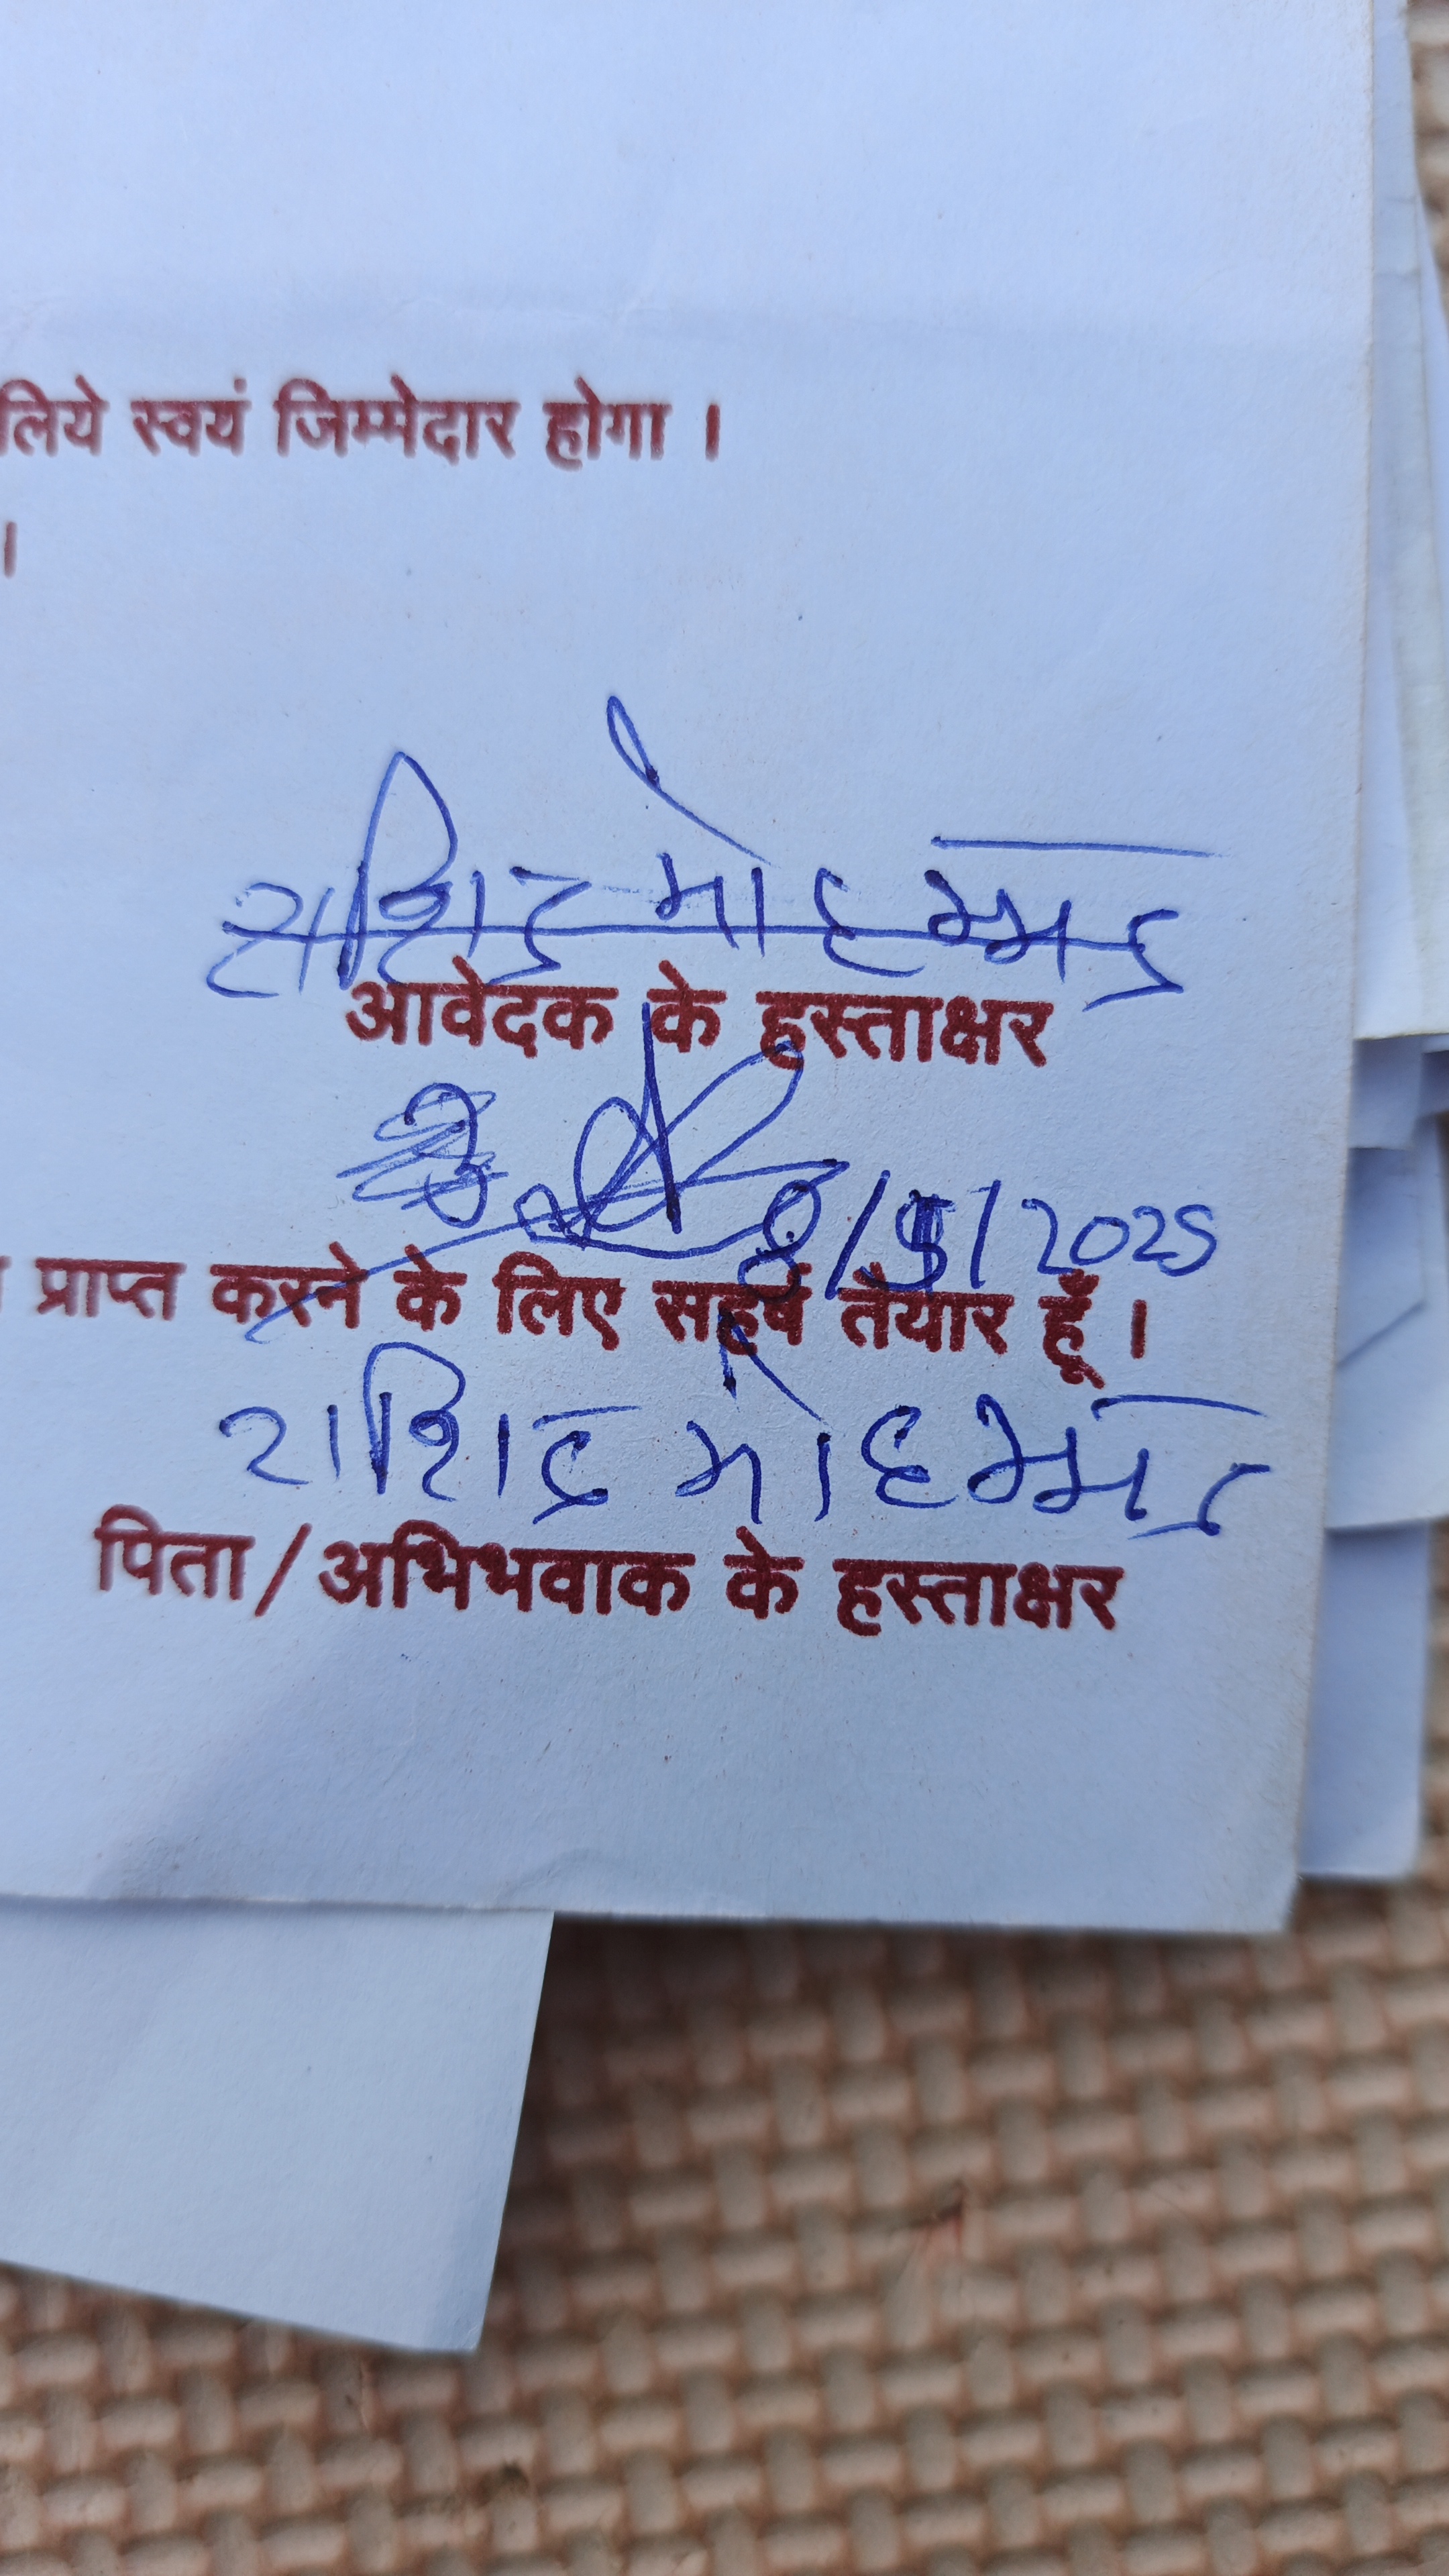 लिये स्वयं जिम्मेदार होगा ।
।
राशिद मोहम्मद
आवेदक के हस्ताक्षर
8/5/2025
प्राप्त करने के लिए सहर्ष तैयार हूँ ।
राशिद मोहम्मद
पिता/अभिभवाक के हस्ताक्षर